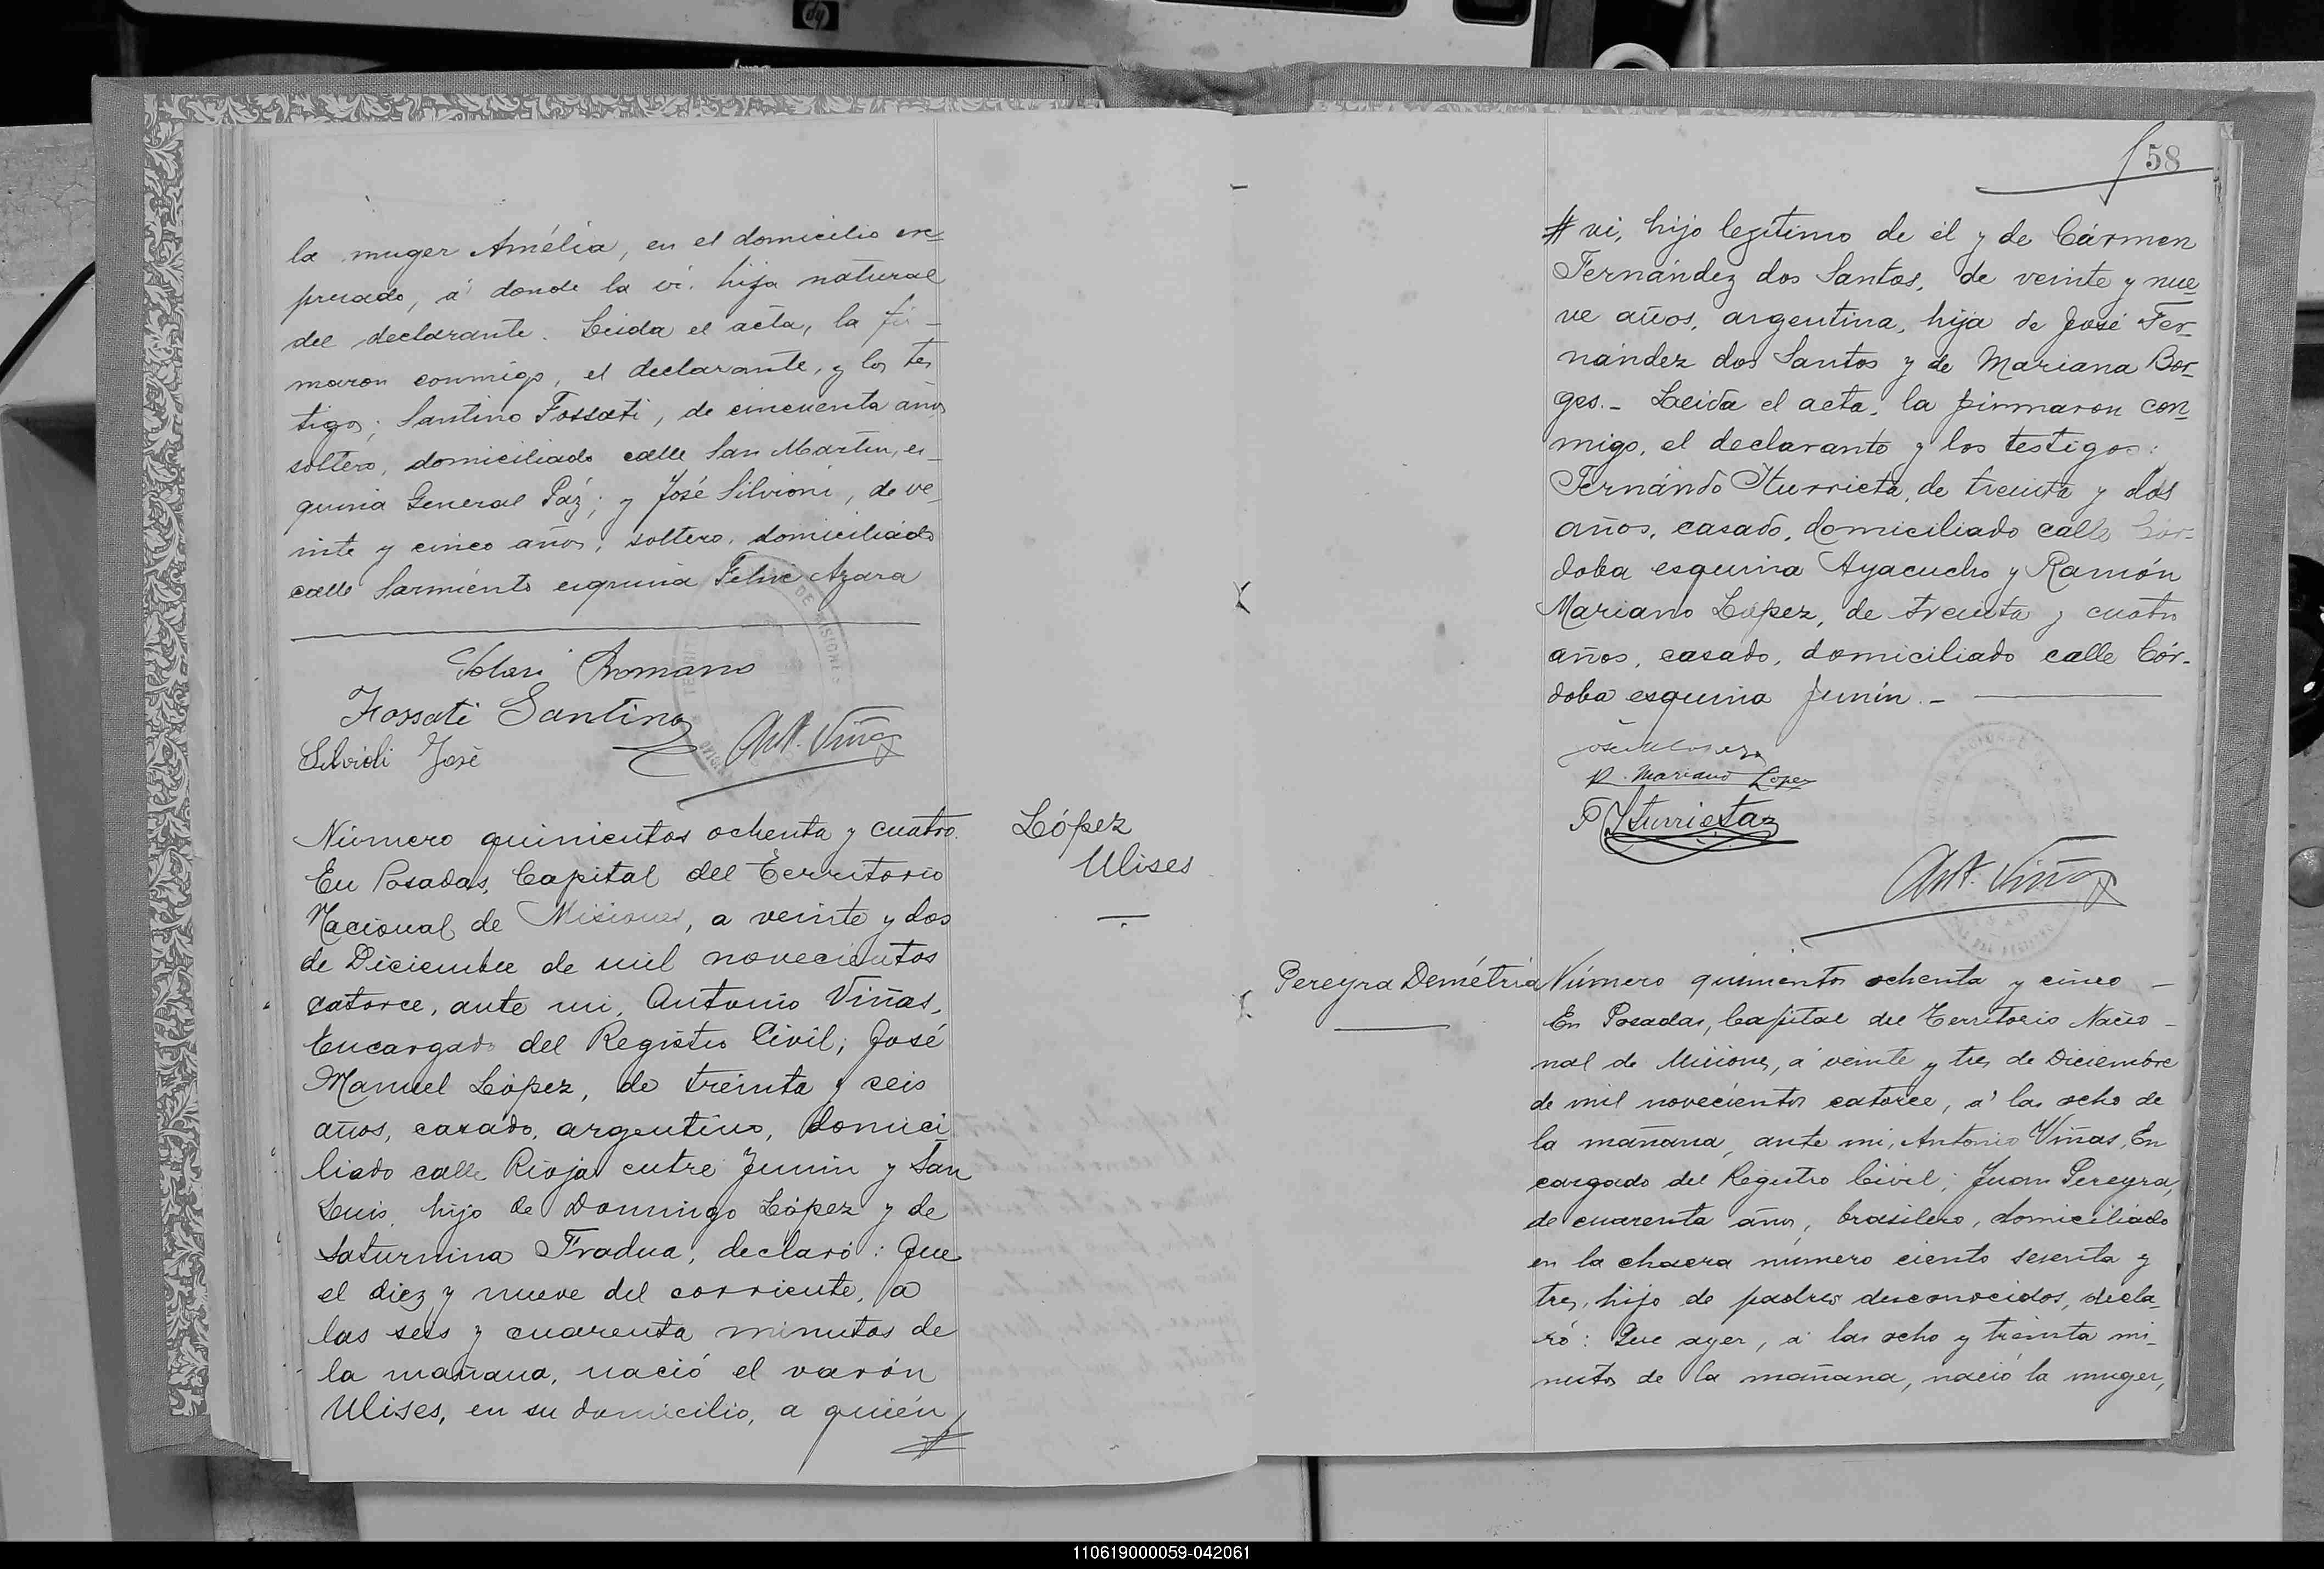 la muger Amélia, en el domicilio ex=
presado, á donde la ví, hija natural
del declarante. Leida el acta, la fir-
maron conmigo, el declarante, y los tes
tigos; Santino Fossati, de cincuenta años
soltero, domiciliado calle San Martin, es-
quina General Páz; y José Silvioni, de ve-
inte y cinco años, soltero, domiciliado
calle Sarmiento esquina Felix Azara
Solari Romano
Fossati Santino
José
Ant. Viñas
Número quinientos ochenta y cuatro.
En Posadas, Capital del Territorio
Nacional de Misiones, a veinte y dos
de Diciembre de mil novecientos
catorce, ante mi, Antonio Viñas,
Encargado del Registro Civil; José
Manuel López, de treinta y seis
años, casado, argentino, domici-
liado calle Rioja entre Junín y San
Luis, hijo de Domingo López y de
Saturnina Fradua, declaró: Que
el diez y nueve del corriente, a
las seis y cuarenta minutos de
la mañana, nació el varón
Ulises, en su domicilio, a quién
#
López
Ulises
58
# vi, hijo legítimo de él y de Cármen
Fernández dos Santos, de veinte y nue-
ve años, argentina, hija de José Fer-
nández dos Santos y de Mariana Bor-
ges.- Leida el acta, la firmaron con-
migo, el declarante y los testigos:
Fernándo Yturrieta, de treinta y dos
años, casado, domiciliado calle Cór-
doba esquina Ayacucho y Ramón
Mariano López, de treinta y cuatro
años, casado, domiciliado calle Cór-
doba esquina Junín.-
R. Mariano Lopez
F Yturrieta
Ant. Viñas
Pereyra Demétria
Número quinientos ochenta y cinco -
En Posadas, Capital del Territorio Nacio-
nal de Misiones, á veinte y tres de Diciembre
de mil novecientos catorce, á las ocho de
la mañana, ante mi, Antonio Viñas, En
cargado del Registro Civil; Juan Pereyra,
de cuarenta años, brasilero, domiciliado
en la chacra número ciento sesenta y
tres, hijo de padres desconocidos, decla-
ró: Que ayer, á las ocho y treinta mi-
nutos de la mañana, nació la muger,
110619000059-042061